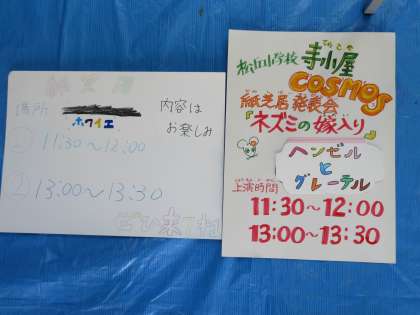 紙芝居
場所
ホワイエ
内容は
お楽しみ
① 11:30～12:00
② 13:00～13:30
ぜひ来てね
小学校 寺小屋
てらこや
COSMOS
紙芝居発表会
『ネズミの嫁入り』
ヘンゼル
と
グレーテル
上演時間
11:30～12:00
13:00～13:30